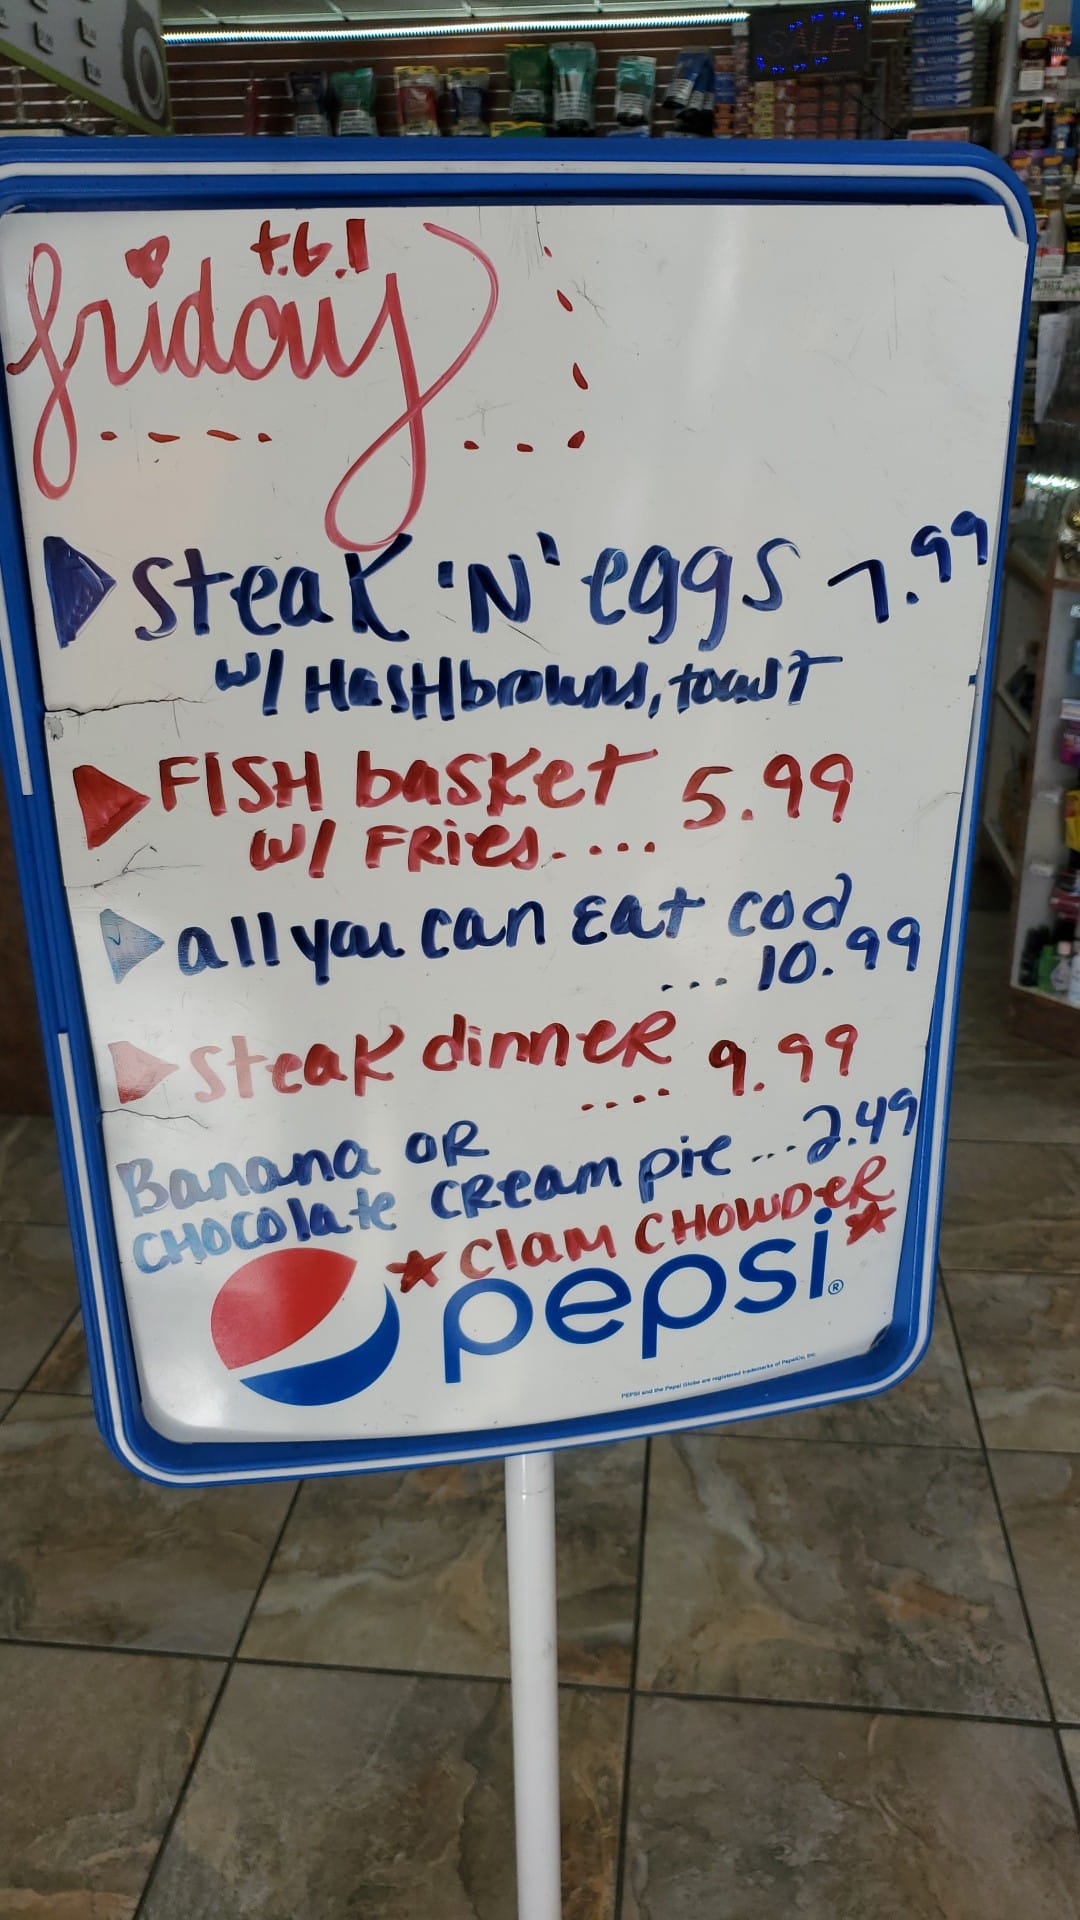 t.g.I
friday
Steak 'N' eggs 7.99
w/ HasHbrowns, toast
FISH basket 5.99
w/ FRies.....
all you can Eat cod
... 10.99
steak dinneR
.... 9.99
Banana OR
CHOColate CReam pie ...2.49
★ Clam CHOWDeR ★
pepsi®
PEPSI and the Pepsi Globe are registered trademarks of PepsiCo, Inc.
SALE
CLASSIC